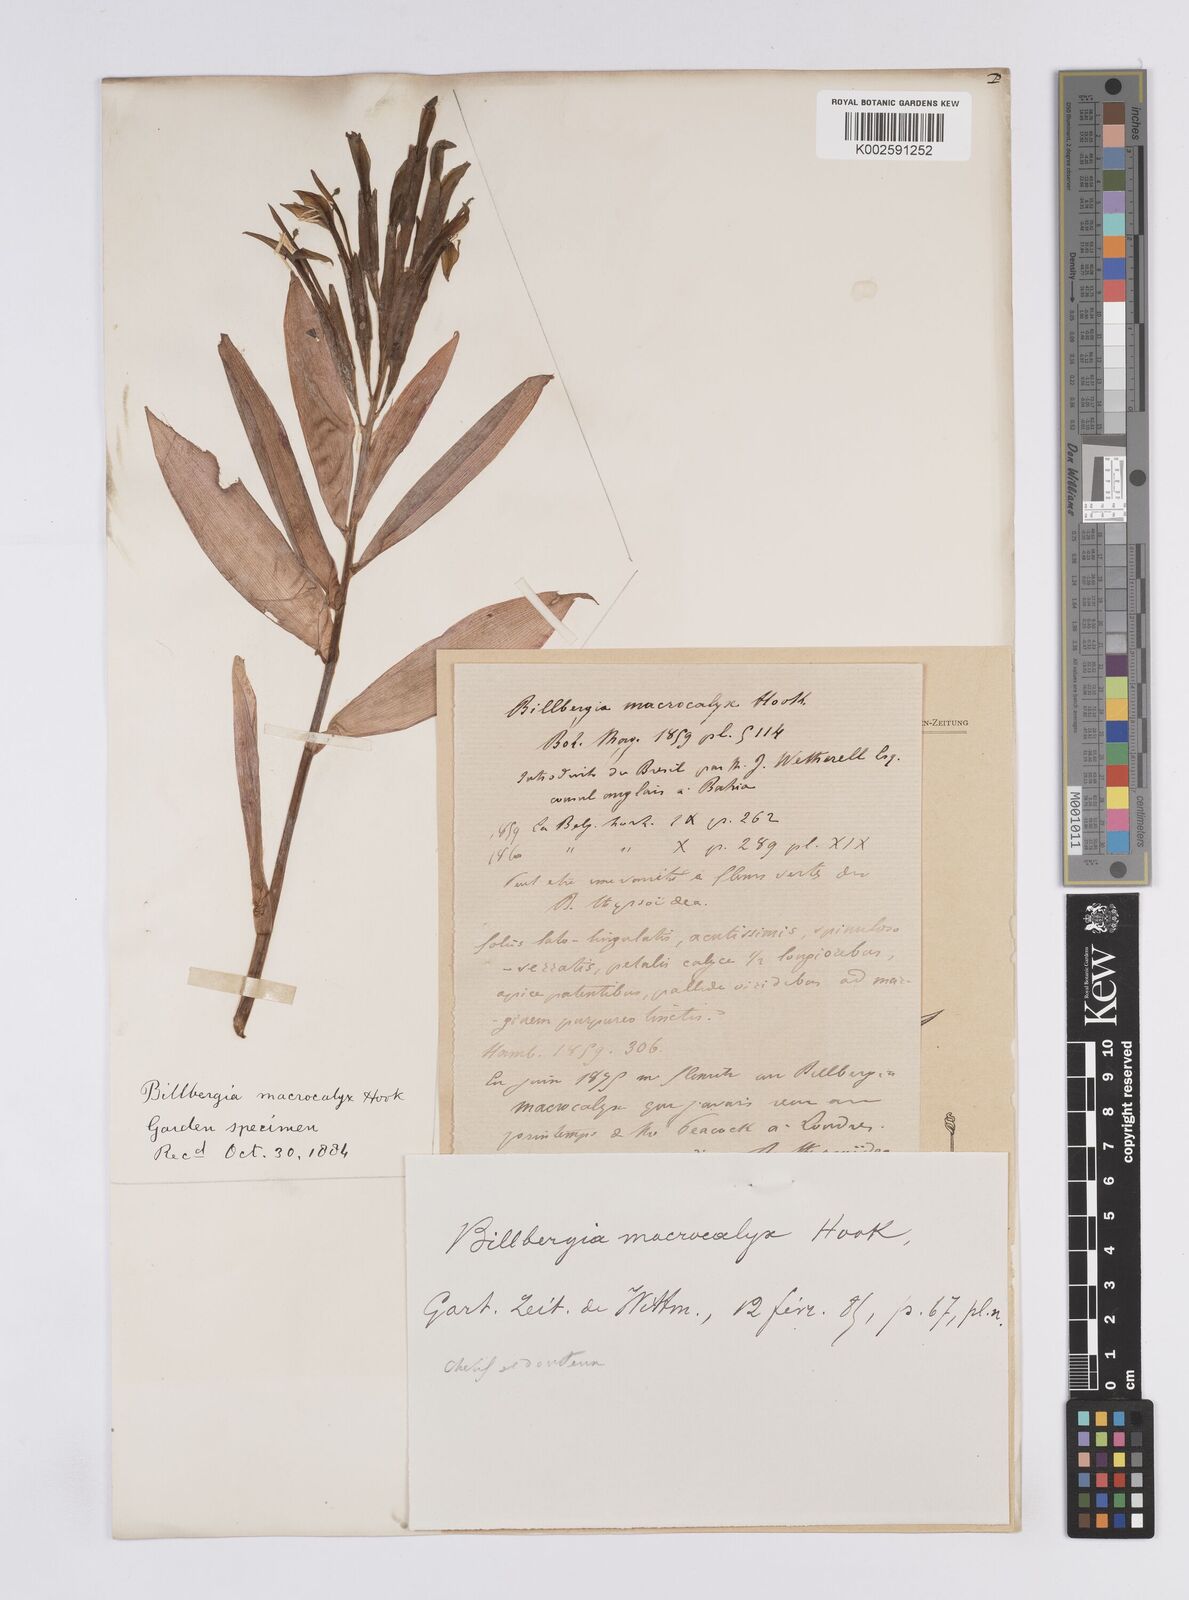 ROYAL BOTANIC GARDENS KEW
K002591252
EN-ZEITUNG
Billbergia macrocalyx Hook.
Bot. Mag. 1859 pl. 5114
Introduit du Bresil par M. J. Wetherell Esq.
consul anglais a Bahia
1859 La Belg. hort. IX p. 262
1860 " " X p. 289 pl. XIX
Peut etre une variété à fleurs vertes du
B. thyrsoidea.
foliis lato-lingulatis, acutissimis, spinuloso
-serratis, petalis calyce 1/2 longioribus,
apice patentibus, pallide viridibus ad mar-
-ginem purpureo tinctis.
Hamb. 1859. 306.
En juin 1875 m fleurit un Billbergia
macrocalyx que j'avais reçu au
printemps de Mr Peacock a Londres.
Billbergia macrocalyx Hook
Garden specimen
Recd Oct. 30, 1884
Billbergia macrocalyx Hook,
Gart. Zeit. de Wittm., 12 févr. 85, p. 67, pl. n.
inches
centimetres
Density
Don Williams
M001011
Kew
Royal Botanic Gardens
copyright reserved
0 1 2 3 4 5 6 7 8 9 10
cm